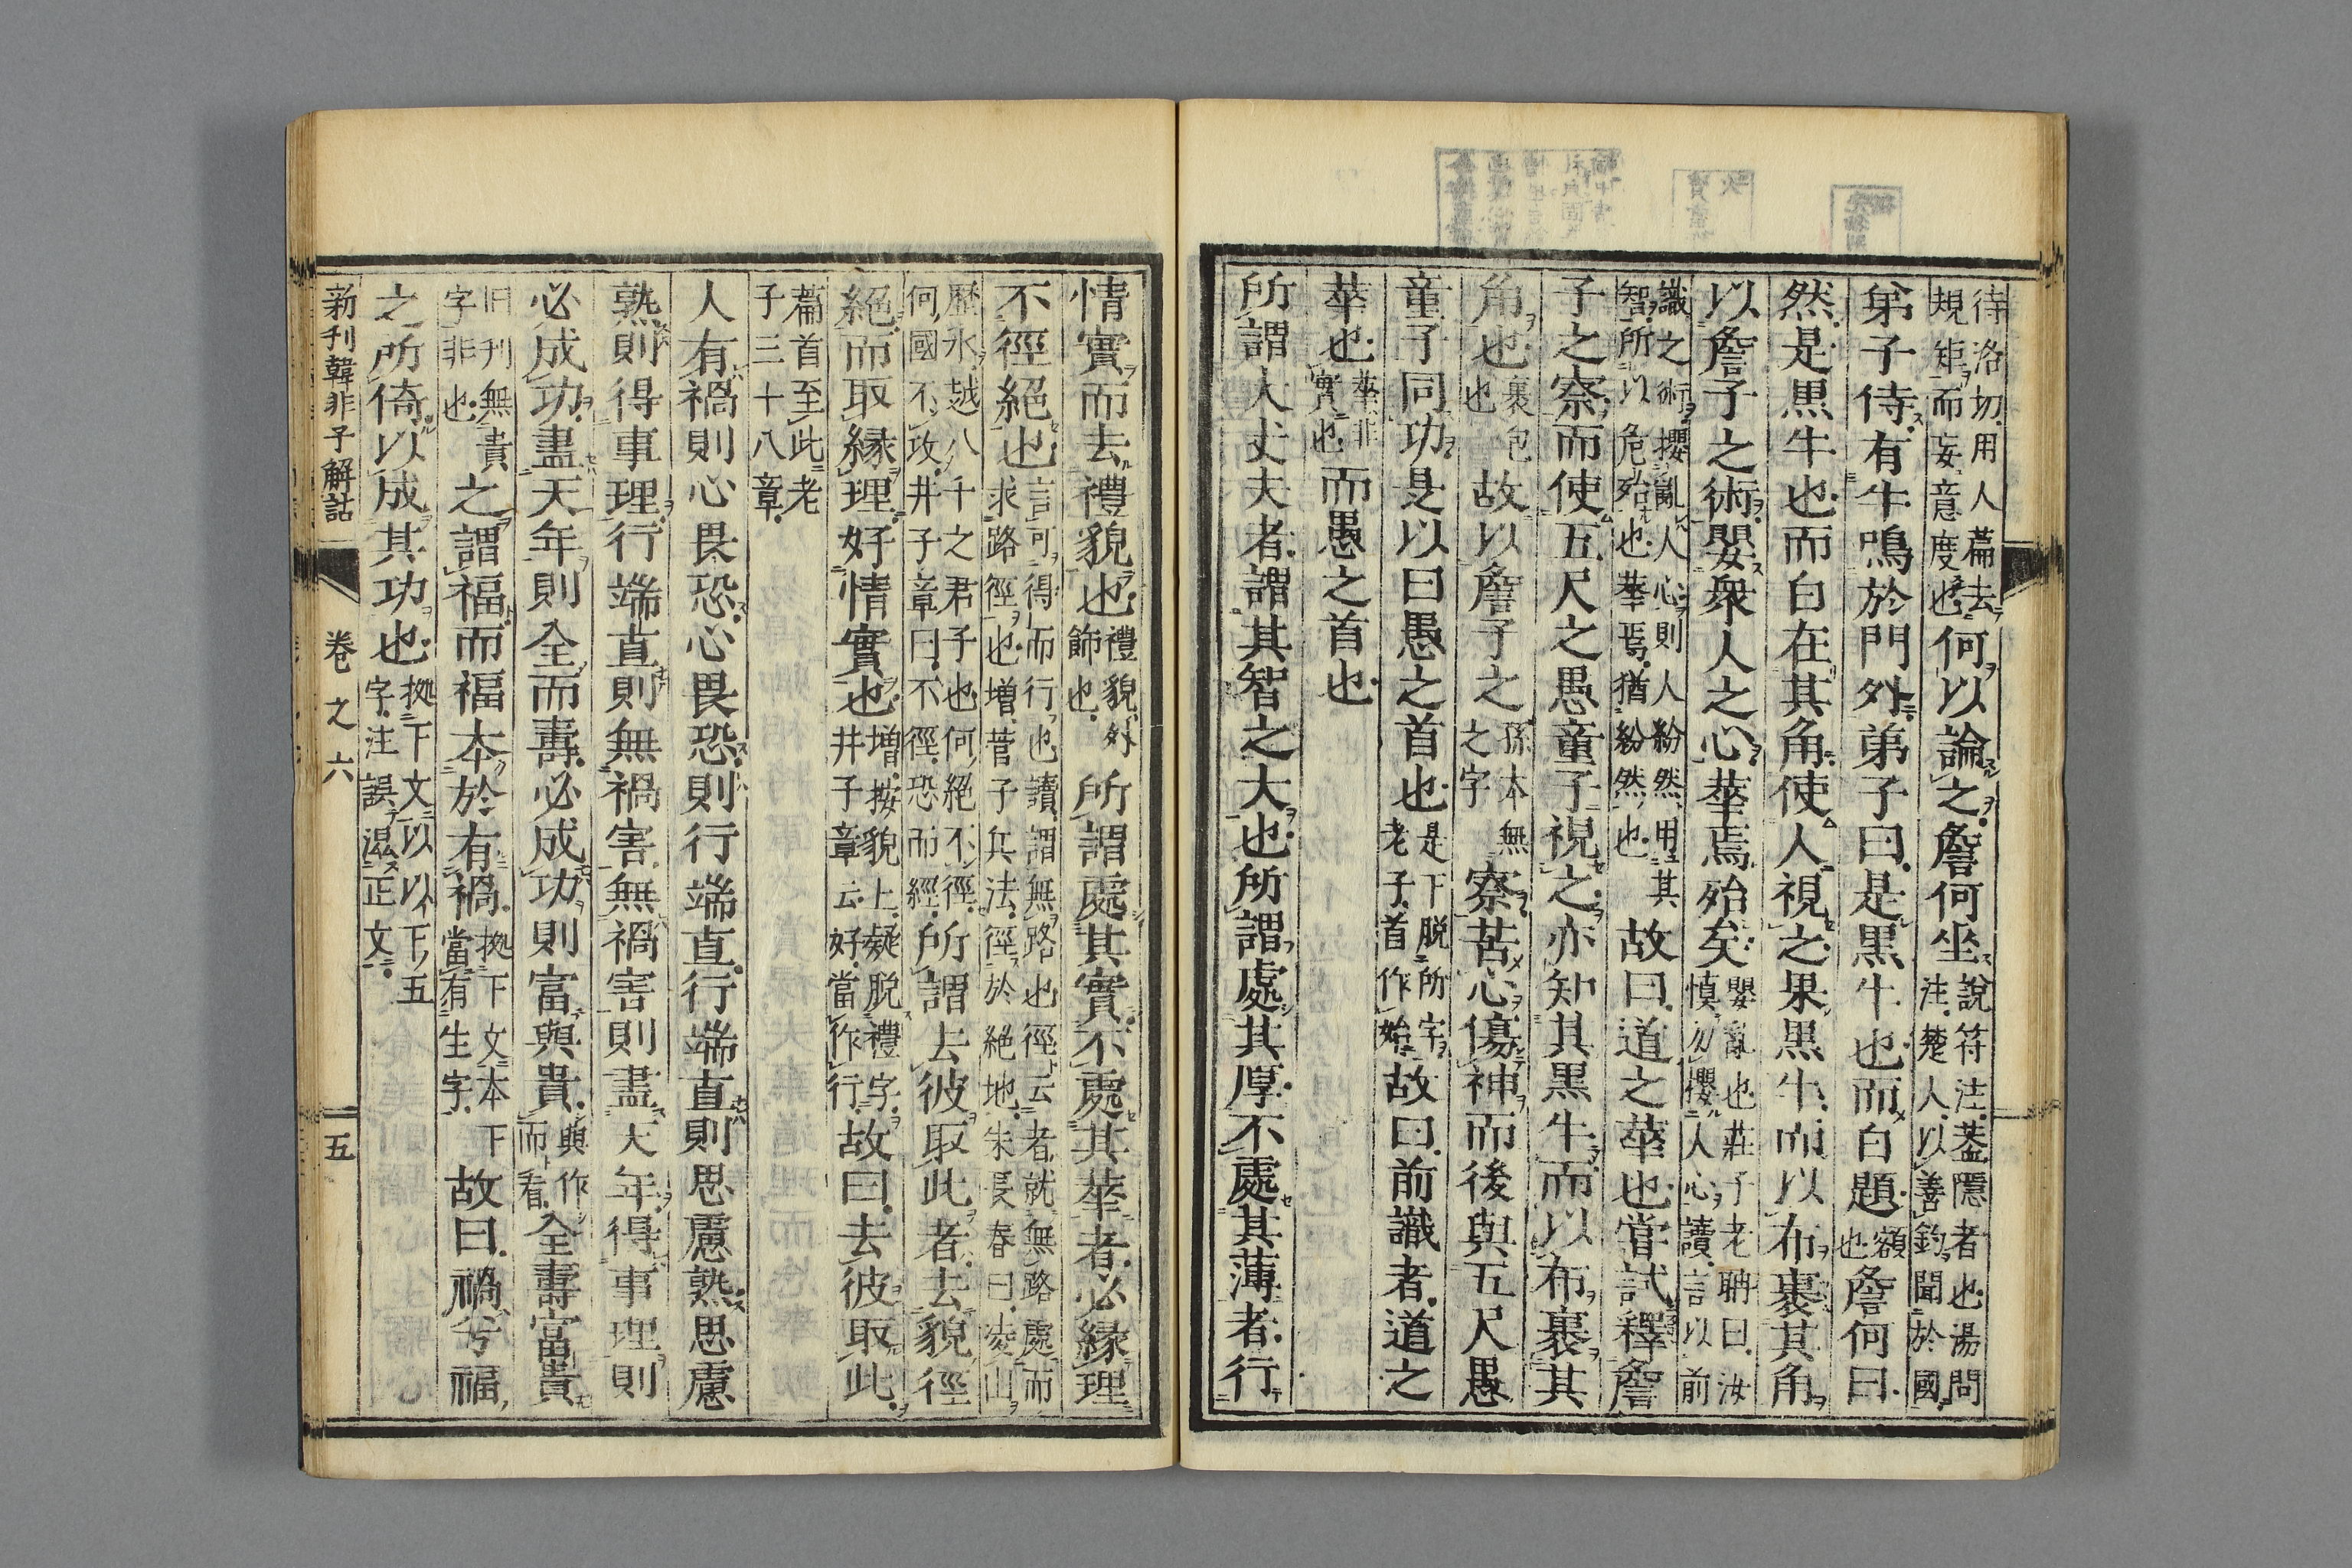 待洛切用人篇去
規矩而妄意度也何以論之詹何坐說符注蓋隱者也湯問
注楚人以善釣聞於國
弟子侍有牛鳴於門外弟子曰是黒牛也而白題額也詹何曰
然是黒牛也而白在其角使人視之果黒牛而以布裹其角
以詹子之術嬰衆人之心華焉殆矣嬰亂也莊子老聃曰汝
慎勿攖人心讀言以前
識之術攖亂人心則人紛然用其
智所以危殆也華焉猶紛然也故曰道之華也甞試釋詹
子之察而使五尺之愚童子視之亦知其黒牛而以布裹其
角也裹包也故以詹子之孫本無之字察苦心傷神而後與五尺愚
童子同功是以曰愚之首也是下脱所字老子首作始故曰前識者道之
華也華非實也而愚之首也
所謂大丈夫者謂其智之大也所謂處其厚不處其薄者行
情實而去禮貌也禮貌外飾也所謂處其實不處其華者必緣理
不徑絕也言可得而行也讀謂無路也徑云者就無路處而
求路徑也増管子兵法徑於絕地朱長春曰凌山
歷水越八千之君子也何絕不徑
何國不攻井子章曰不徑恐而經所謂去彼取此者去貌徑
絕而取緣理好情實也増按貌上疑脱禮字井子章云好當作行故曰去彼取此
篇首至此老
子三十八章
人有禍則心畏恐心畏恐則行端直行端直則思慮熟思慮
熟則得事理行端直則無禍害無禍害則盡天年得事理則
必成功盡天年則全而壽必成功則富與貴與作而看全壽富貴
旧刊無貴字非也之謂福而福本於有禍拠下文本下當有生字故曰禍兮福
之所倚以成其功也拠下文以以下五字注誤混正文
新刊韓非子解詁 卷之六 五